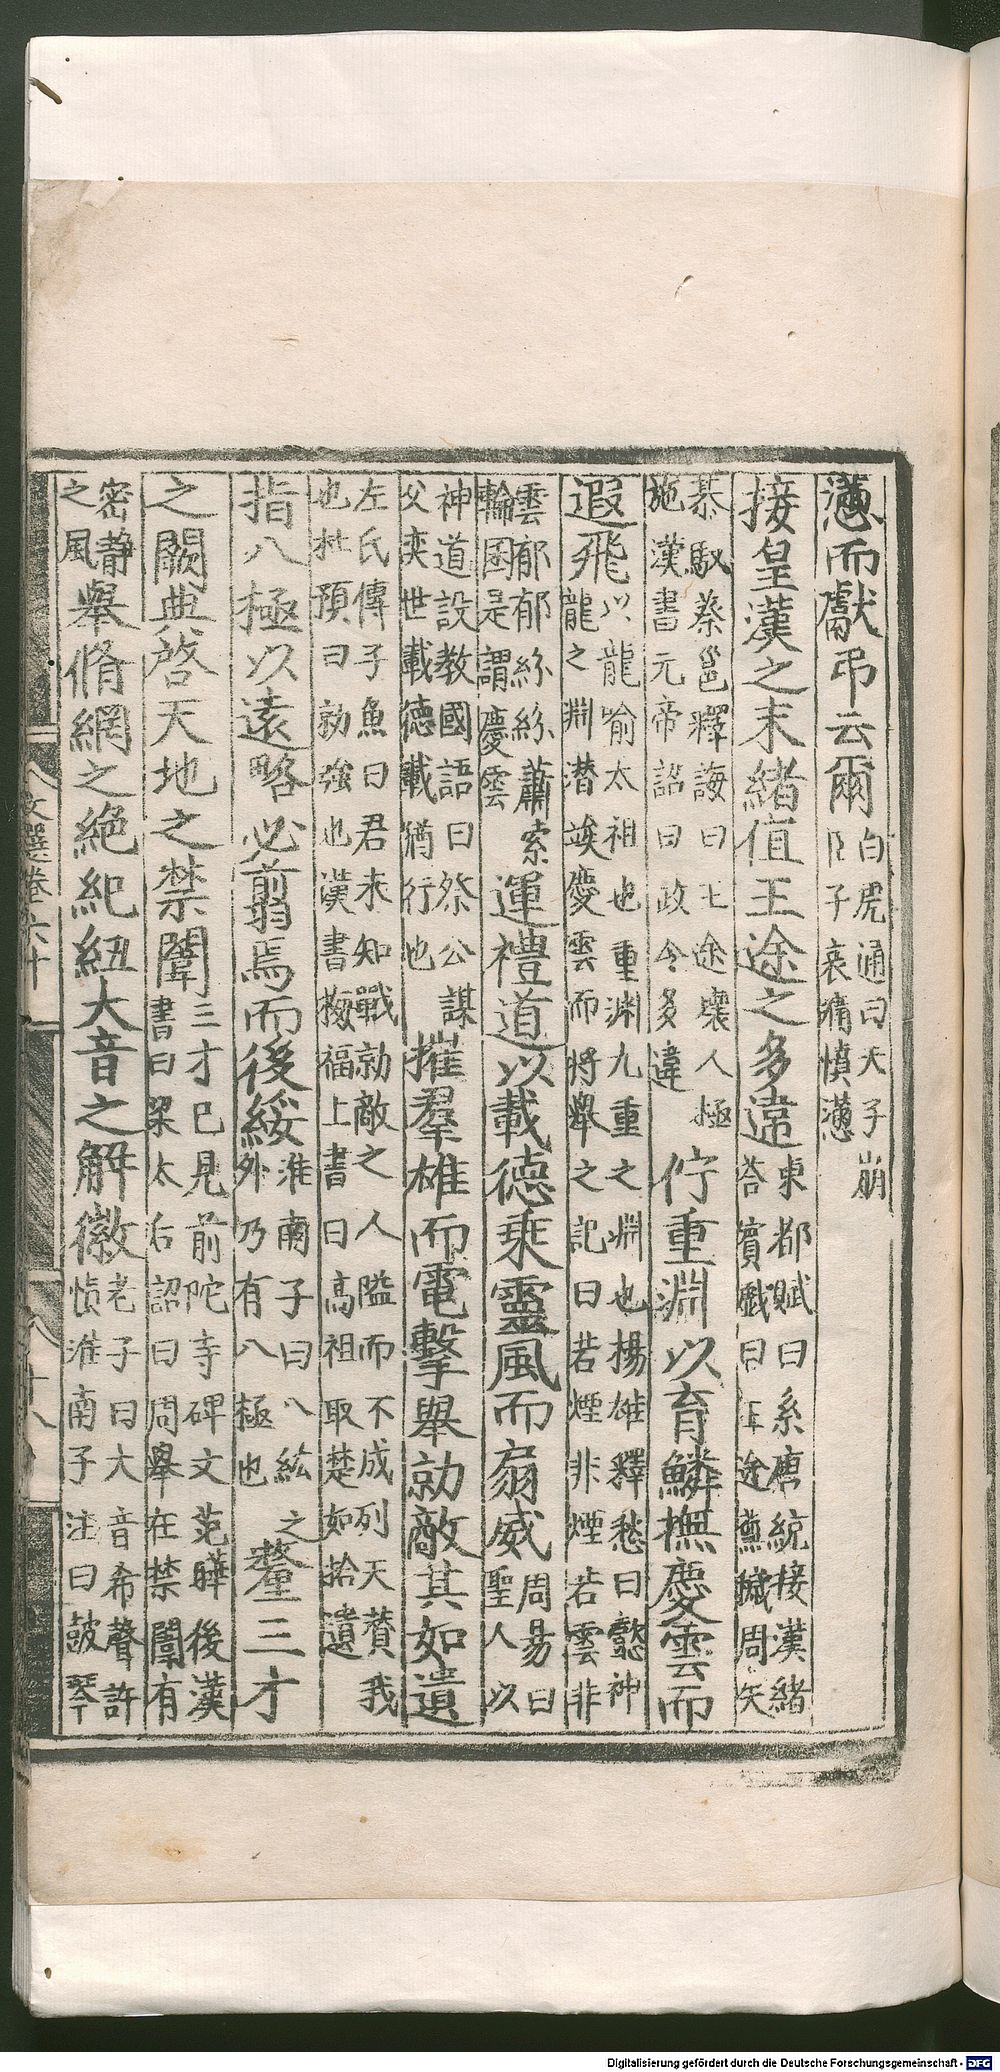 懣而獻弔云爾白虎通曰天子崩
臣子哀痛憤懣
接皇漢之末緒值王途之多違東都賦曰系唐統接漢緒
荅賓戲曰王途蕪穢周失
綦馭蔡邕釋誨曰王途壞人極
施漢書元帝詔曰政令多違佇重淵以育鱗撫慶雲而
遐飛以龍喻太祖也重淵九重之淵也揚雄釋愁曰懿神
龍之淵潛竢慶雲而將舉之記曰若煙非煙若雲非
雲郁郁紛紛蕭索
輪囷是謂慶雲運禮道以載德乘靈風而扇威周易曰
聖人以
神道設教國語曰祭公謀
父奕世載德載猶行也摧羣雄而電擊舉勍敵其如遺
左氏傳子魚曰君未知戰勍敵之人隘而不成列天贊我
也杜預曰勍強也漢書梅福上書曰高祖取楚如拾遺
指八極以遠略必翦焉而後綏淮南子曰八紘之
外乃有八極也釐三才
之闕典啓天地之禁闈三才已見前陀寺碑文范曄後漢
書曰梁太后詔曰周舉在禁闈有
密靜
之風舉脩網之絕紀紐大音之解徽老子曰大音希聲許
慎淮南子注曰鼓琴
文選卷六十
Digitalisierung gefördert durch die Deutsche Forschungsgemeinschaft - DFG